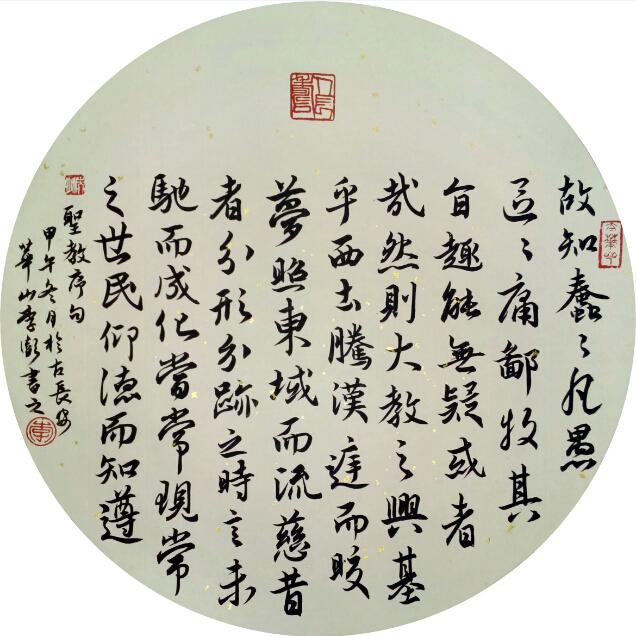 故知蠢々凡愚
區々庸鄙投其
旨趣能無疑或者
哉然則大教之興基
乎西土騰漢庭而皎
夢照東域而流慈昔
者分形分跡之時言未
馳而成化當常現常
之世民仰德而知遵
聖教序句
甲午冬月於古長安
華山李書之